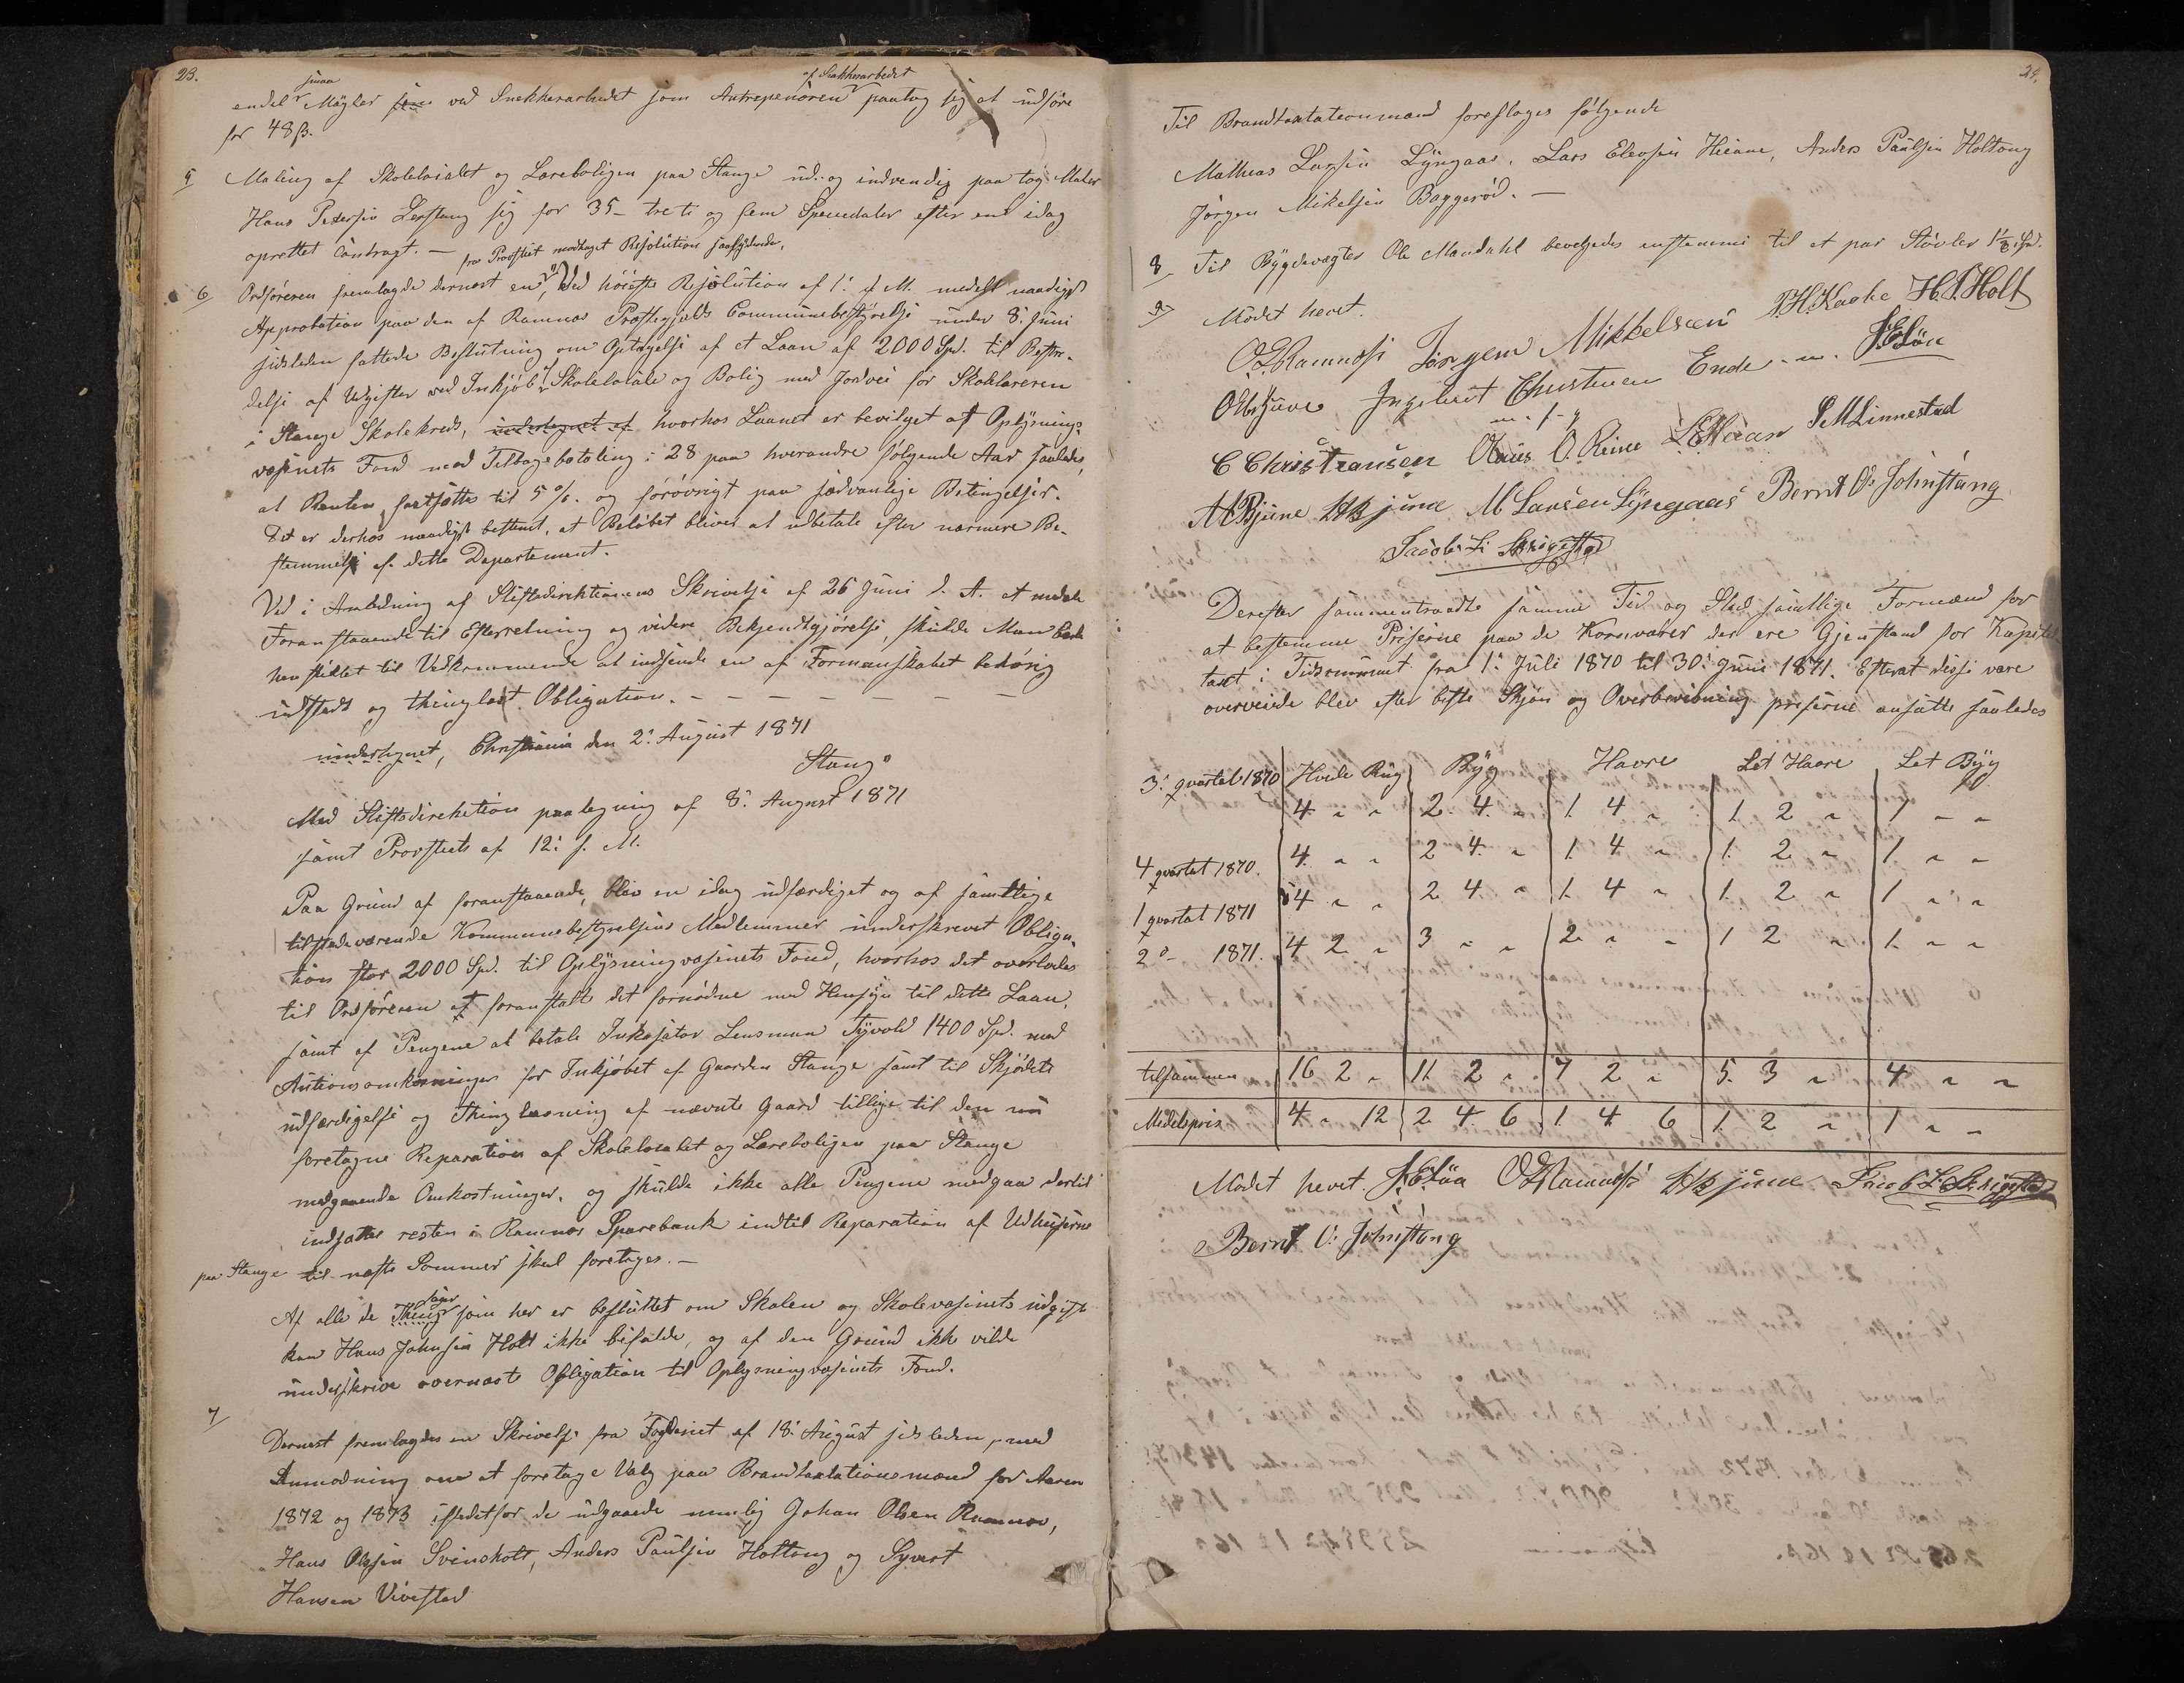 23.
endel smaa Mægler ved Snekkerarbedet som Antrepenören af Snekkerarbedet paatog sig at udföre
for 48 ß.
5 Maling af Skolelocalet og Læreboligen paa Stange ud- og indvendig paa tog Maler
Hans Pedersen sig for 35 - treti og fem Speciedaler efter en idag
oprettet Contragt. —
6 Ordföreren fremlagde dernæst en fra Provstiet modtaget Resolution saalydende, Ved höieste Resolution af 1: d. M. meddelt naadigst
Approbation paa den af Ramnæs Præstegjelds Communebestyrelse under 8. Juni
sidsleden fattede Beslutning om Optagelse af et Laan af 2000 Spd. til Bestri-
delse af Udgifter ved Inkjöb af Skolelocale og Bolig med Jordvei for Skolelæreren
i Stange Skolekreds, undertegnet af hvorhos Laanet er bevilget af Oplysnings-
væsenets Fond mod Tilbagebetaling i 28 paa hverandre fölgende Aar saaledes,
at Renten fastsættes til 5 %. og foröovrigt paa sædvanlige Betingelser.
Det er derhos naadigst bestemt, at Belöbet bliver at udbetale efter nærmere Be-
stemmelse af dette Departement.
Ved i Anledning af Stiftsdirektionens Skrivelse af 26 Juni d. A. at meddele
Foranstaaende til Efterretning og videre Bekjendtgjörelse, skulde Man
henstillet til Vedkommende at indsende en af Formanskabet behörig
udstedt og thinglæst Obligation. — — — — — —
undertegnet, Christiania den 2: August 1871
Stang
Med Stiftsdirektion paategning af 8: August 1871
samt Provstiets af 12: s. M.
Paa Grund af foranstaaende, blev en idag udfærdiget og af samtlige
tilstedeværende Kommunebestyrelsens Medlemmer underskrevet Obliga-
tion stor 2000 Spd. til Oplysningvæsenets Fond, hvorhos det overlodes
til Ordföreren at foranstalte det fornödne med Hensyn til dette Laan,
samt af Pengene at betale Inkasator Lensman Tyvold 1400 Spd. med
Autionsomkosninger for Inkjöbet af Gaarden Stange samt til Skjödets
udfærdigelse og Thinglæsning af nævnte Gaard tillige til den nu
foretagne Reparation af Skolelocalet og Læreboligen paa Stange
medgaaende Omkostninger, og skulde ikke alle Pengene medgaa dertil
indsættes resten i Ramnæs Sparebank indtil Reparation af Udhusene
paa Stange til næste Sommer skal foretages. —
Af alle de Ting sager som her er besluttet om Skolen og Skolevæsenets udgift
kan Hans Johnsen Holt ikke bifalde, og af den Grund ikke vilde
underskrive overnævnte Obligation til Oplysningvæsenets Fond.
7 Dernæst fremlagdes en Skrivelse fra Fogderiet af 18: August sidsleden, med
Anmodning om at foretage Valg paa Brandtaxtationsmænd for Aaren
1872 og 1873 istedetfor de udgaaede nemlig Johan Olsen Ramnæs,
Hans Olsen Svinsholt, Anders Paulsen Holtung og Syvert
Hansen Vivestad
24.
Til Brandtaxtationsmænd foreslages fölgende
Mathias Larsen Lyngaas, Lars Elevsen Hieäne, Anders Paulsen Holtung
Jörgen Mikelsen Baggeröd. —
8 Til Bygdevægter Ole Mandahl bevilgedes enstemmi til et par Stövler 1½ Spd.
9 Mödet hevet.
O. Ramnæs Jörgen Mikkelsen P.H. Kaahe H. J. Holt
O Bjüve Ingebret Christensen Ende m. f. p. J. E. Löa
C Christiansen Olaus O. Reine S M Linnestad
A Bjüne M Larsen Lyngaas Bernt O: Johnstang
Jacob L.
Derefter sammentraadte samme Tid og Sted samtlige Formænd for
at bestemme Priserne paa de Kornvarer der ere Gjenstand for Kapitels
taxt i Tidsrummet fra 1: Juli 1870 til 30: Juni 1871. Efterat disse vare
overveiede blev efter beste Skjön og Overbevisning priserne ansatte saaledes
3: qvartal 1870 Hvide Rüg Byg Havre Let Havre Let Byg
4 " " 2 4 " 1 4 " 1 2 " 1 " "
4 qvartal 1870. 4 " " 2 4 " 1 4 " 1 2 " 1 " "
1 qvartal 1871 4 " " 2 4 " 1 4 " 1 2 " 1 " "
2 D - 1871. 4 2 " 3 " " 2 " " 1 2 " 1 " "
tilsammen 16 2 " 11 2 " 7 2 " 5 3 " 4 " "
Medelspris 4 " 12 2 4 6 1 4 6 1 2 " 1 " "
Mödet hevet. J. E. Löa O. Ramnæs Jacob L.
Bernt O: Johnstang